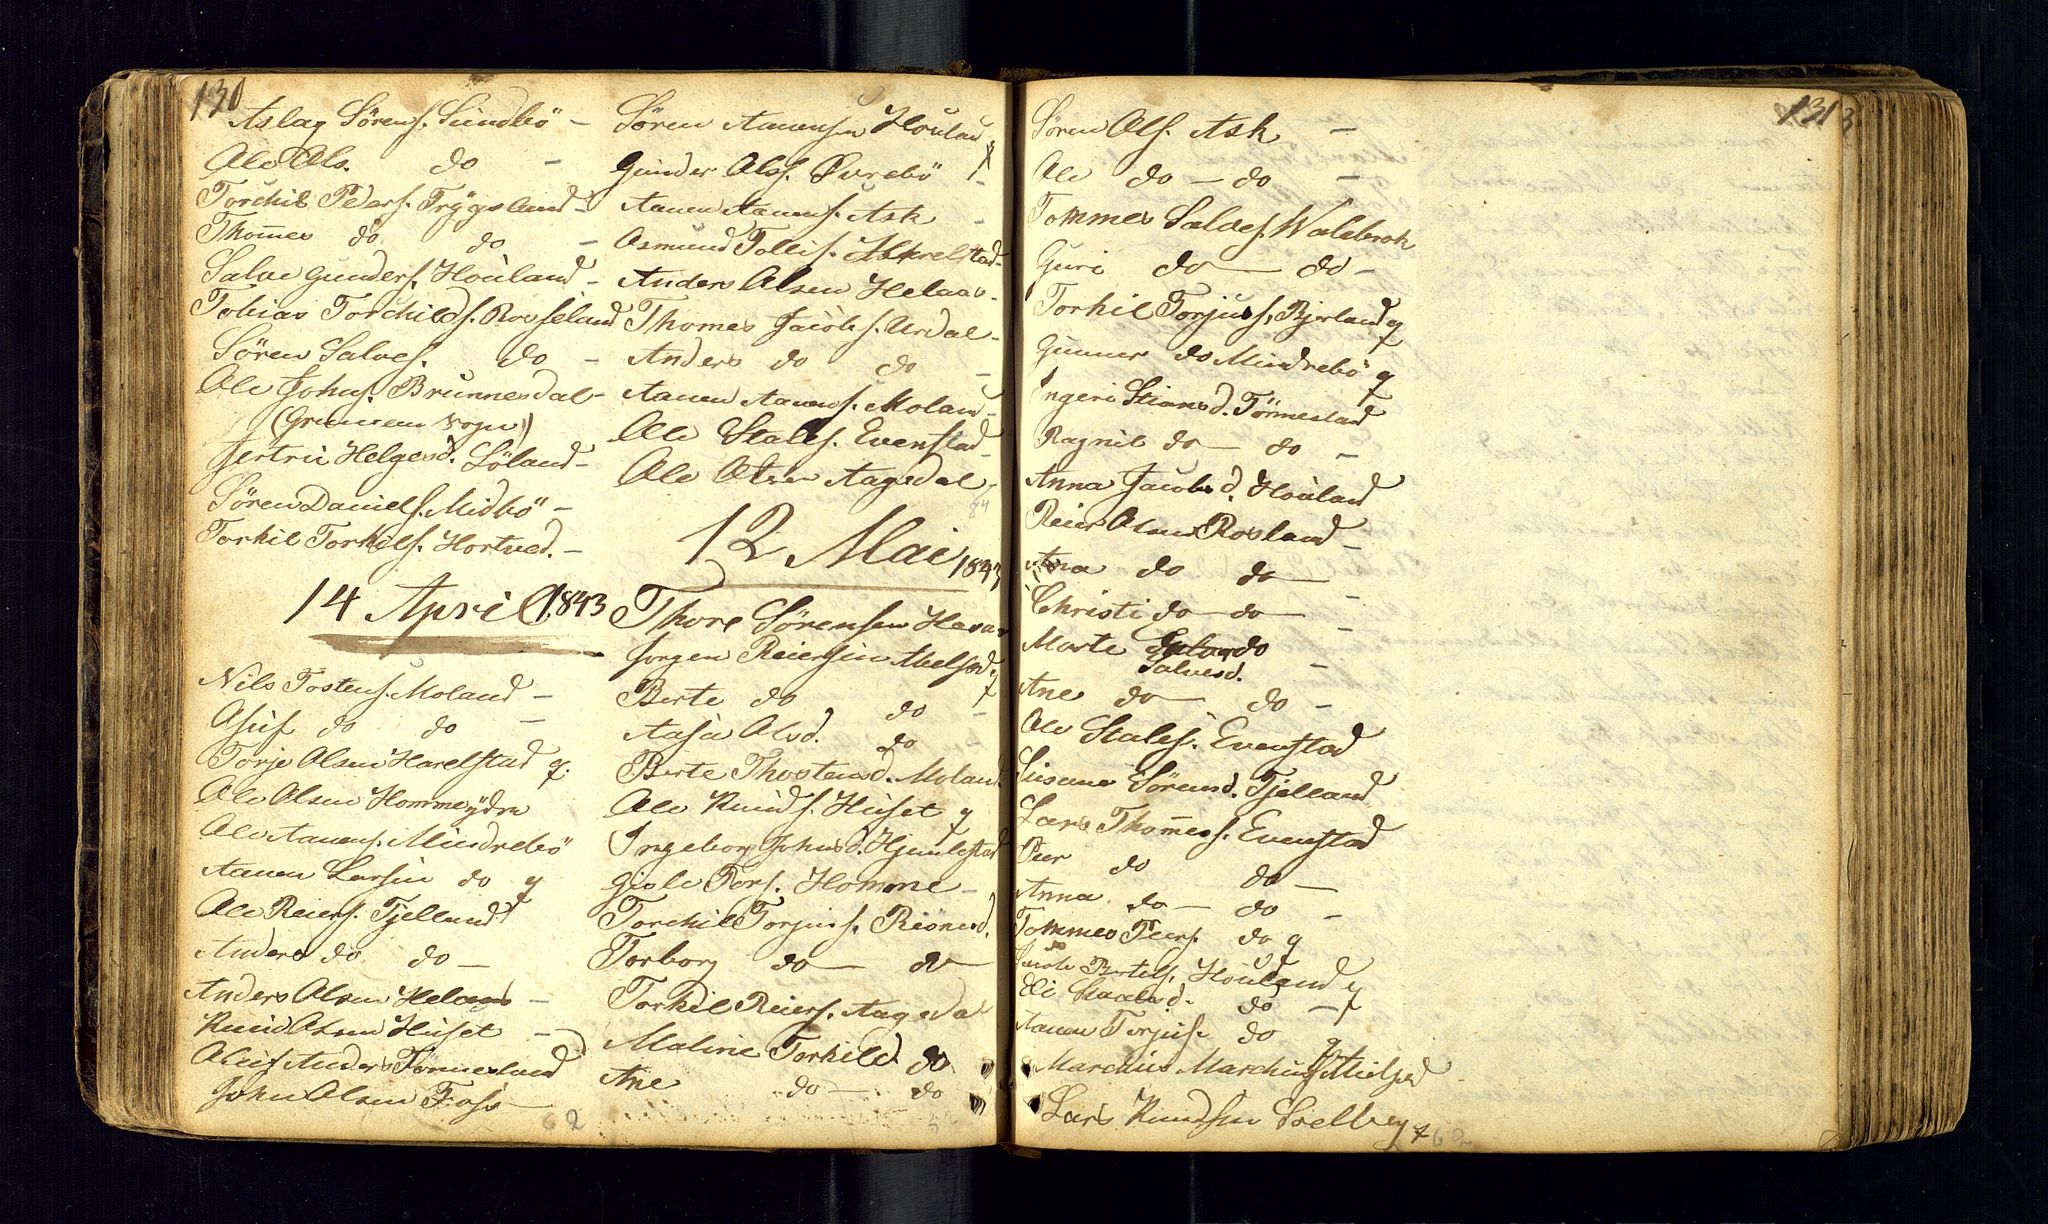 130
Aslag Sörens. Sundbö –
Ole Ols. do –
Torchil Peders. Trÿgsland –
Thom̄es do do –
Salve Gunders. Houland –
Tobias Torchilds. Rosseland
Sören Salves. do –
Ole Johns. Brunnesdal –
(Grunnem Sogn)
Jertrie Helgesd. Löland –
Sören Daniels. Midbö –
Torkil Torkils. Hortved. –
14 April 1843
Nils Tostens. Moland –
Asuf do do –
Torje Olsen Harelstad q.
Ole Olsen Hommeÿdre
Ole Aanens. Mindrebö
Aanen Larsen do q
Ole Reiers. Tjelland
Anders do do –
Anders Olsen Helaas –
Knud Olsen Huset –
Oluf Anders Tönnesland
John Olsen Foss –
62
Sören Aanensen Houland
Gunder Olss. Purebö –
Aanen Aanens. Ask –
Osmund Tollis. Askrelstad –
Anders Olsen Helaas –
Thomes Jacobs. Urdal –
Anders do do –
Aanen Aanens. Moland –
Ole Stales. Evenstad –
Ole Olsen Aagedal –
84
12 Mai 1843
Thore Sörensen Havaas
Jörgen Reiersen Mielsod q
Berte do do –
Aasa Olsd. do
Berte Thostensd. Moland.
Ole Knuds. Huset q
Ingeborg Johnsd. Hjemlestad
Gisle Tors. Homme –
Torchil Torjus s. Risnesd.
Torborg do – do
Torkil Reiers. Aagedal
Maline Torkild. do
Ane do – do
131
Sören Ols. Ask –
Ole do – do –
Tommes Salves. Walebrok
Guri do – do –
Torkil Torjus s. Bjerland q
Gunner do Mindrebö q
Ingeri Stiansd. Tönnesland
Ragnil do – do –
Anna Jacobsd. Houland
Reier Olsen Rosland –
Ana do do –
Christi do – do –
Marte do
Salvesd. –
Ane do – do –
Ole Stales. Evenstad
Susanne Sörensd. Tjelland
Lars Thom̄ess. Evenstad
Peer do do –
Anna do – do –
Tommes Peers. do q
Jacob Bertels. Houland q
Eli do – q
Aanen Torjus s. do
Marchus Marchus s. Mielsod
Lars Knudsen Soelberg q
62